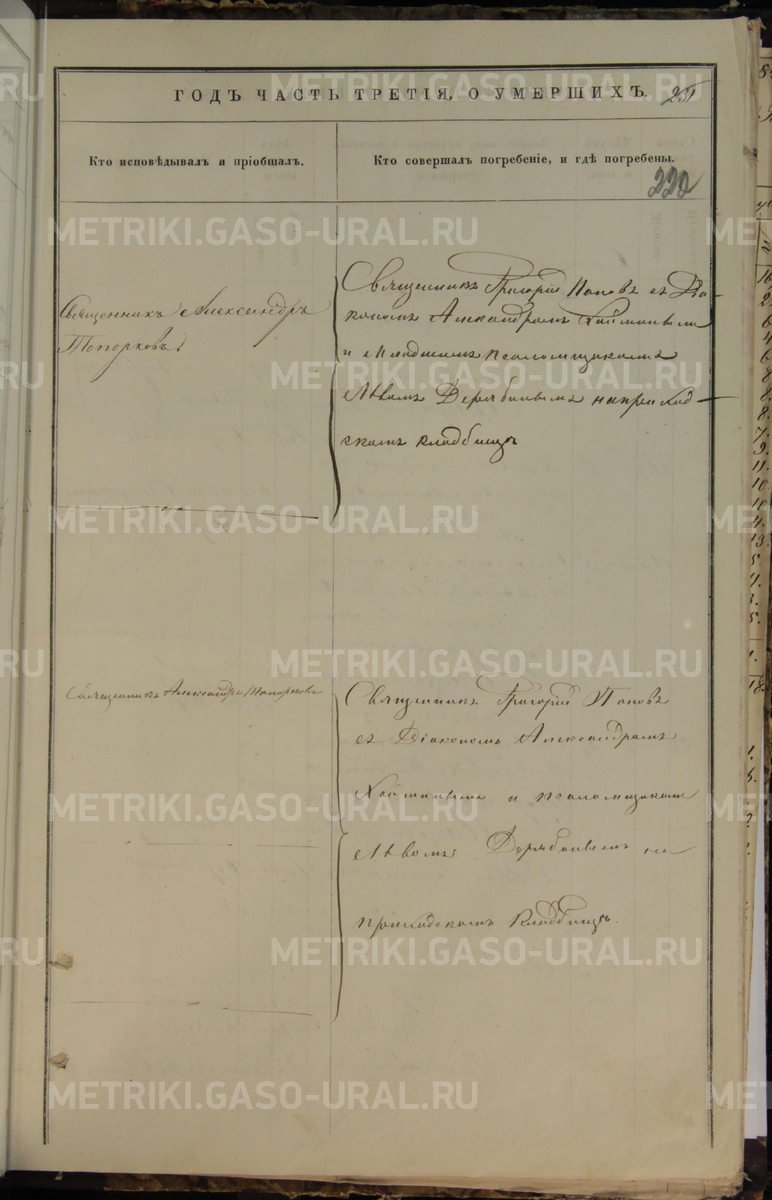 ГОДЪ ЧАСТЬ ТРЕТІЯ, О УМЕРШИХЪ. 251
Кто исповѣдывалъ и пріобщалъ.
Кто совершалъ погребеніе, и гдѣ погребены.
222
Священникъ Александръ
Топорковъ.
Священникъ Григорій Поповъ съ Діа-
кономъ Александромъ
и младшимъ псаломщикомъ
Львомъ Дерябинымъ на приход-
скомъ кладбищѣ
Священникъ Александръ Топорковъ
Священникъ Григорій Поповъ
съ Діакономъ Александромъ
и псаломщикомъ
Львомъ Дерябинымъ на
приходскомъ кладбищѣ.
METRIKI.GASO-URAL.RU